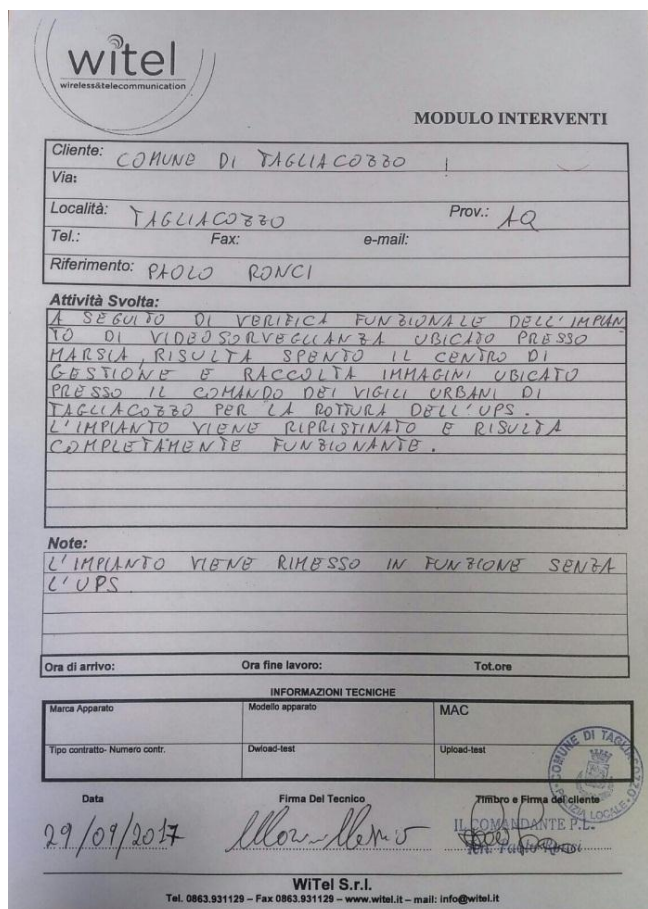 witel
wireless&telecommunication
MODULO INTERVENTI
Cliente: COMUNE DI TAGLIACOZZO
Via:
Località: TAGLIACOZZO Prov.: AQ
Tel.: Fax: e-mail:
Riferimento: PAOLO RONCI
Attività Svolta:
A SEGUITO DI VERIFICA FUNZIONALE DELL'IMPIAN
TO DI VIDEOSORVEGLIANZA UBICATO PRESSO
MARSIA, RISULTA SPENTO IL CENTRO DI
GESTIONE E RACCOLTA IMMAGINI UBICATO
PRESSO IL COMANDO DEI VIGILI URBANI DI
TAGLIACOZZO PER LA ROTTURA DELL'UPS.
L'IMPIANTO VIENE RIPRISTINATO E RISULTA
COMPLETAMENTE FUNZIONANTE.
Note:
L'IMPIANTO VIENE RIMESSO IN FUNZIONE SENZA
L'UPS
Ora di arrivo: Ora fine lavoro: Tot.ore
INFORMAZIONI TECNICHE
Marca Apparato Modello apparato MAC
Tipo contratto- Numero contr. Dwload-test Upload-test
COMUNE DI TAGLIACOZZO
POLIZIA LOCALE
Data Firma Del Tecnico Timbro e Firma del cliente
29/09/2017
IL COMANDANTE P.L.
WiTel S.r.l.
Tel. 0863.931129 – Fax 0863.931129 – www.witel.it – mail: info@witel.it